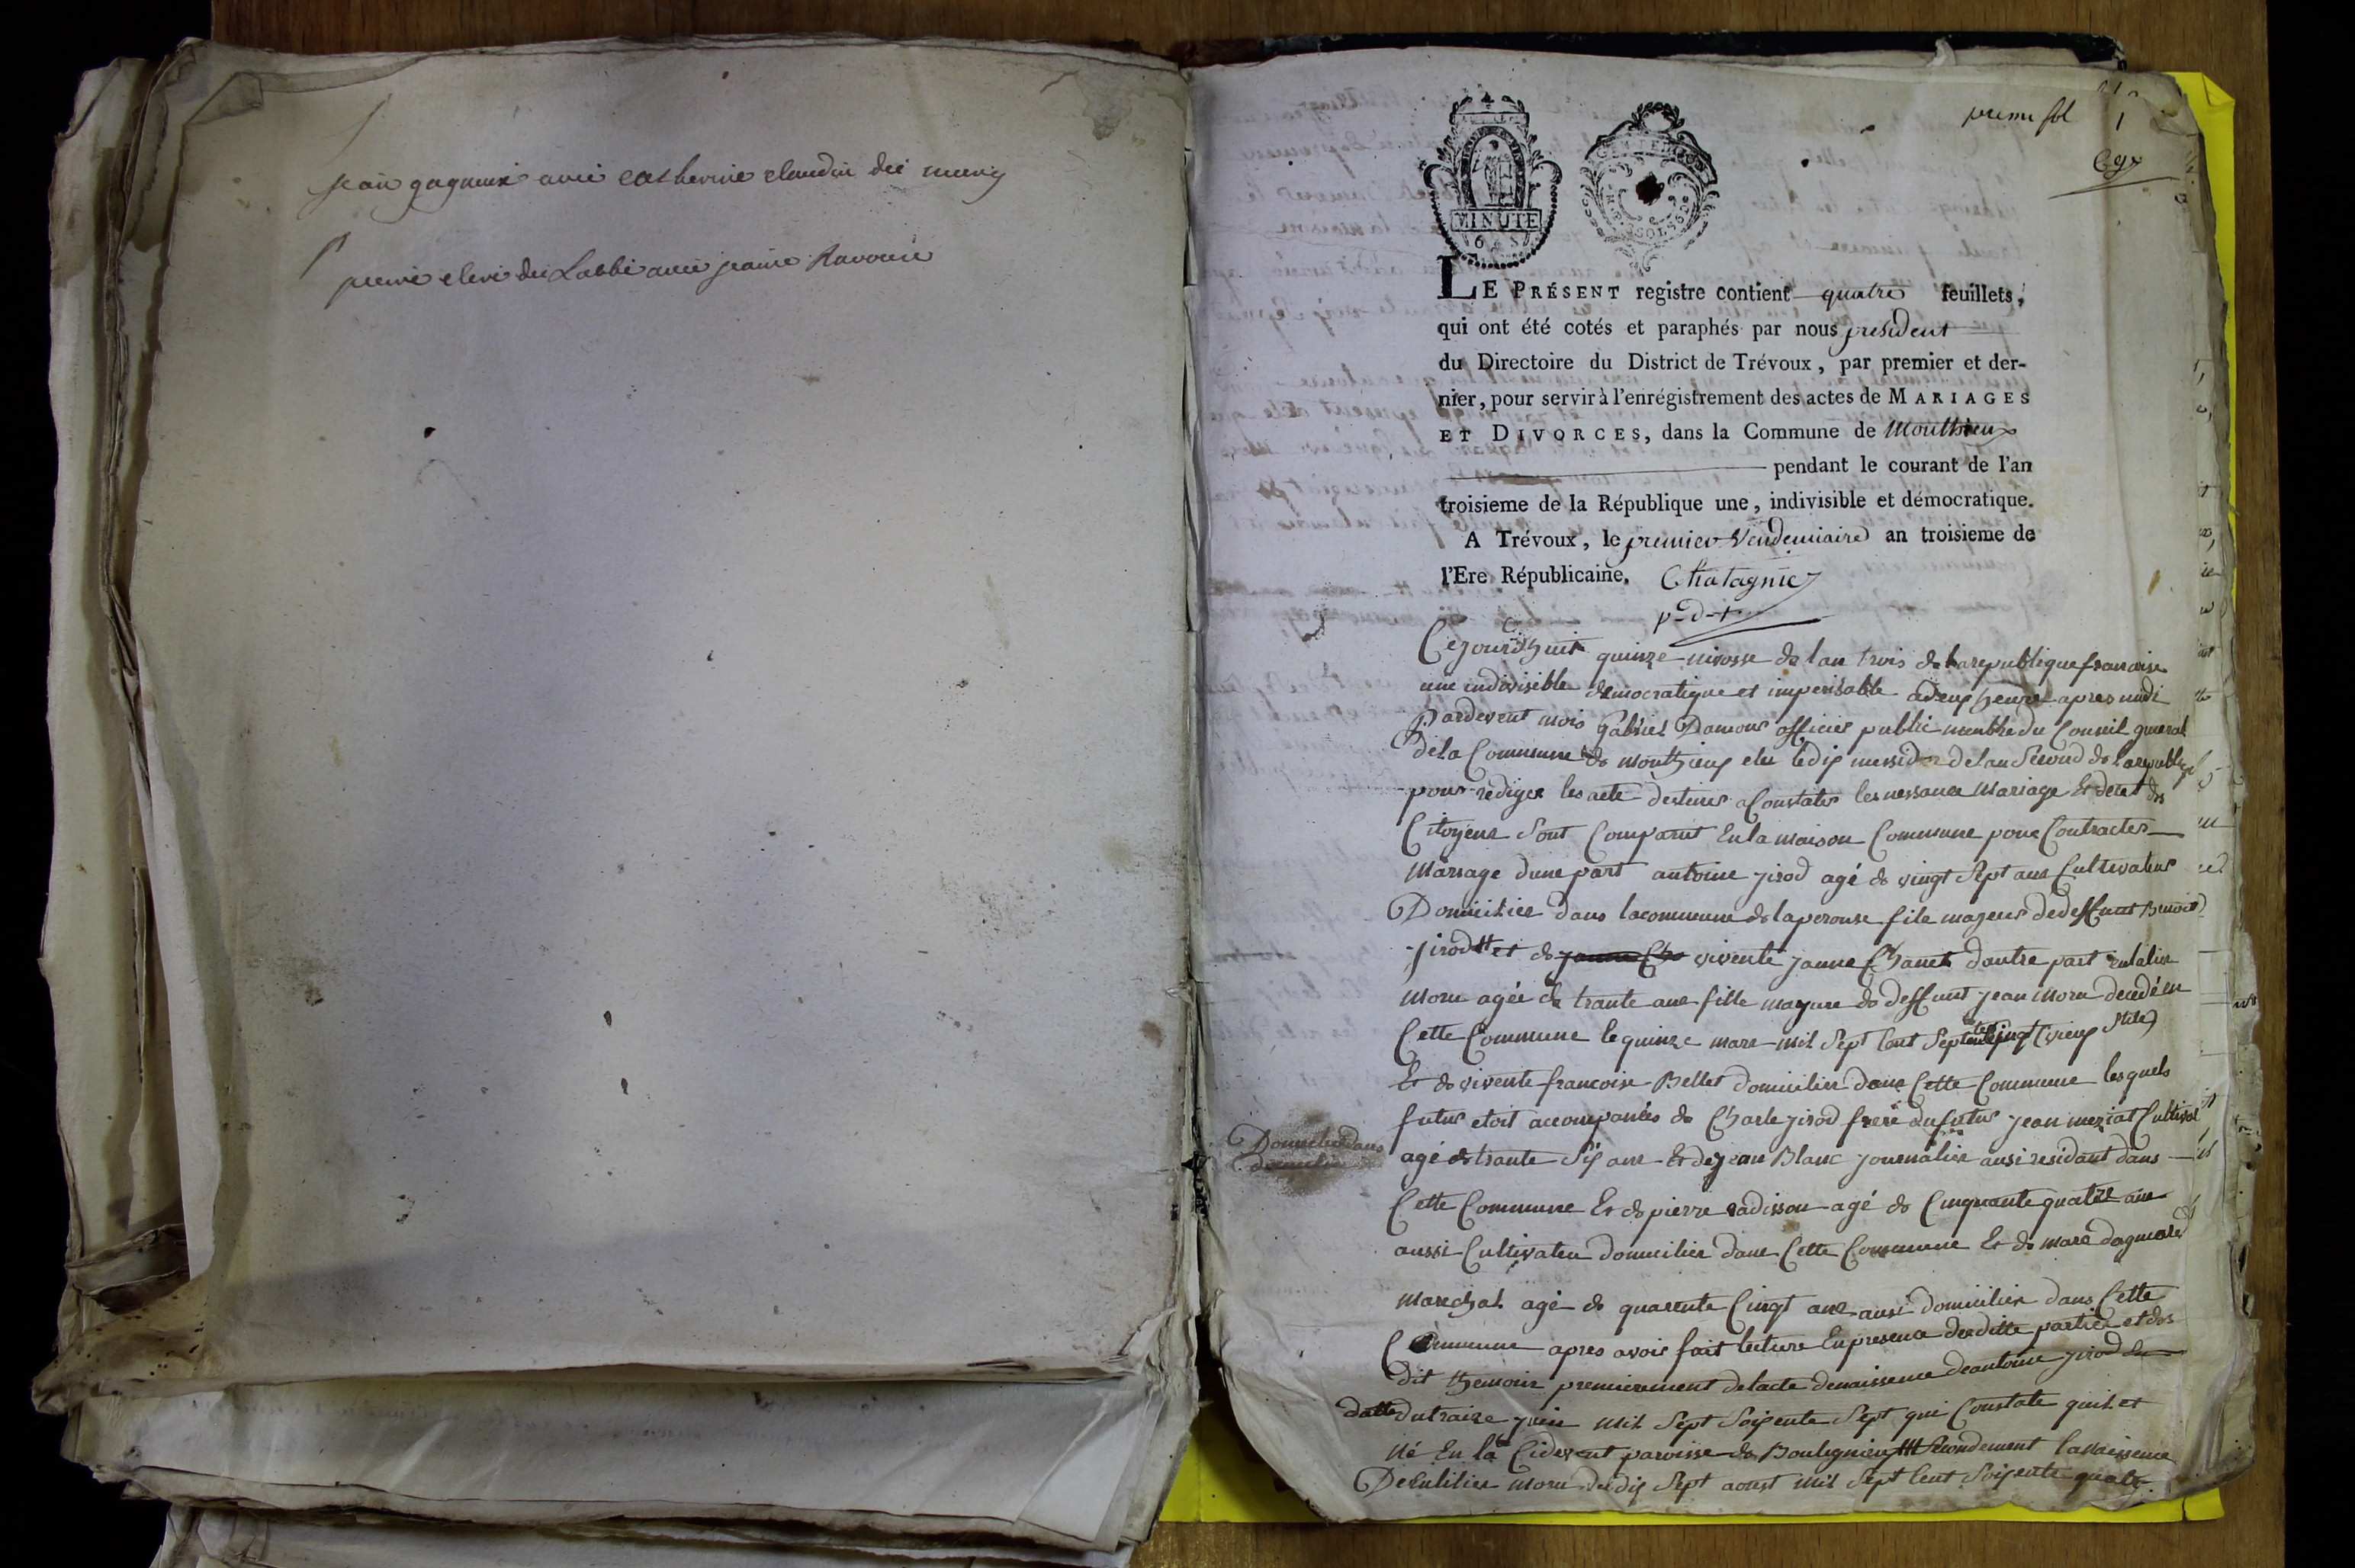 jean gagneux avec catherine claudin dit
pierre clere dit Labbé avec jeanne Ravoure
premier fol 1
MINUTE
6 S
LE PRÉSENT registre contient quatre feuillets,
qui ont été cotés et paraphés par nous president
du Directoire du District de Trévoux, par premier et der-
nier, pour servir à l'enrégistrement des actes de MARIAGES
ET DIVORCES, dans la Commune de Monthieux
pendant le courant de l'an
troisieme de la République une, indivisible et démocratique.
A Trévoux, le premier Vendemiaire an troisieme de
l'Ere Républicaine. Chatagnier
p-d-t
Cejourdhuit quinze nivosse de lan trois de la republique francaise
une indivisible democratique et imperisable a deux heures apres midi
Pardevent mois Gabriel Damour officier public membre du Conseil general
de la Commune de Monthieux elu le dix messidor de lan Second de la republique
pour rediger les acte destines a Constater les nessance Mariage Et deces des
Citoyens Sont Comparut En la maison Commune pour Contracter
Mariage dune part antoine jirod agé de vingt Sept ans Cultivateur
Domicilier dans la commune de laperouse fils mageur de deffunt Benoit
jirod et de janne Cha vivente janne Chanet dautre part
Moru agée de trante ans fille mayure de deffunt jean Moru decedé en
Cette Commune le quinze mars mil Sept Cent Septente (vieux stile)
Et de vivente francoise Bellet domicilier dans Cette Commune lesquels
futur etoit accompanies de Charle jirod frere du futur jean meziat Cultivat
Domicilier dans
agé de trante Six ans Et de jean Blanc journalier ausi residant dans
Cette Commune Et de pierre radisson agé de Cinquante quatre ans
aussi Cultivateu domicilier dans Cette Commune Et de marc dagneaux
marechal agé de quarente Cingt ans ausi domicilier dans Cette
Commune apres avoir fait lecture En presence desditte parties et des
dit themoin premierement de lacte denaissence de antoine jirod en
datte du traize juin mil Sept Soixente Sept qui Constate quil et
né En la Cidevent paroisse de Bouligneux Secondement la naissence
De Moru du dix Sept aoust mil Sept Cent Soixente quatre